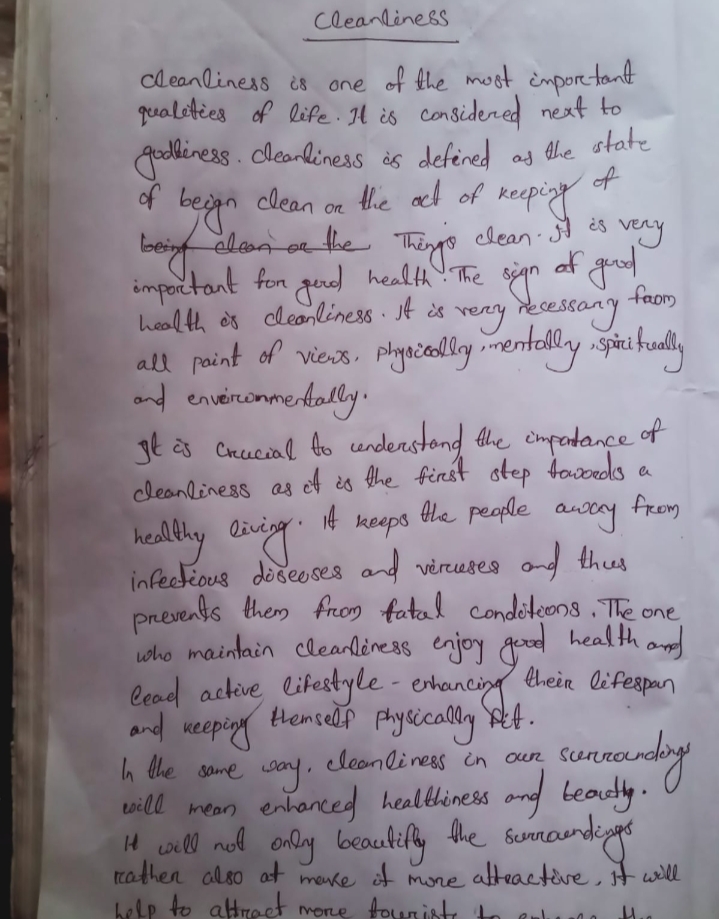 Cleanliness
Cleanliness is one of the most important
qualities of life. It is considered next to
godliness. Cleanliness is defined as the state
of beign clean or the act of keeping of
being clean or the Things clean. It is very
important for good health. The sign of good
health is cleanliness. It is very necessary from
all point of views, physically, mentally, spiritually
and environmentally.
It is crucial to understand the importance of
cleanliness as it is the first step towards a
healthy living. It keeps the people away from
infectious diseases and viruses and thus
prevents them from fatal conditions. The one
who maintain cleanliness enjoy good health and
lead active lifestyle - enhancing their lifespan
and keeping themself physically fit.
In the same way, cleanliness in our surroundings
will mean enhanced healthiness and beauty.
It will not only beautify the surroundings
rather also at make it more attractive. It will
help to attract more tourists to